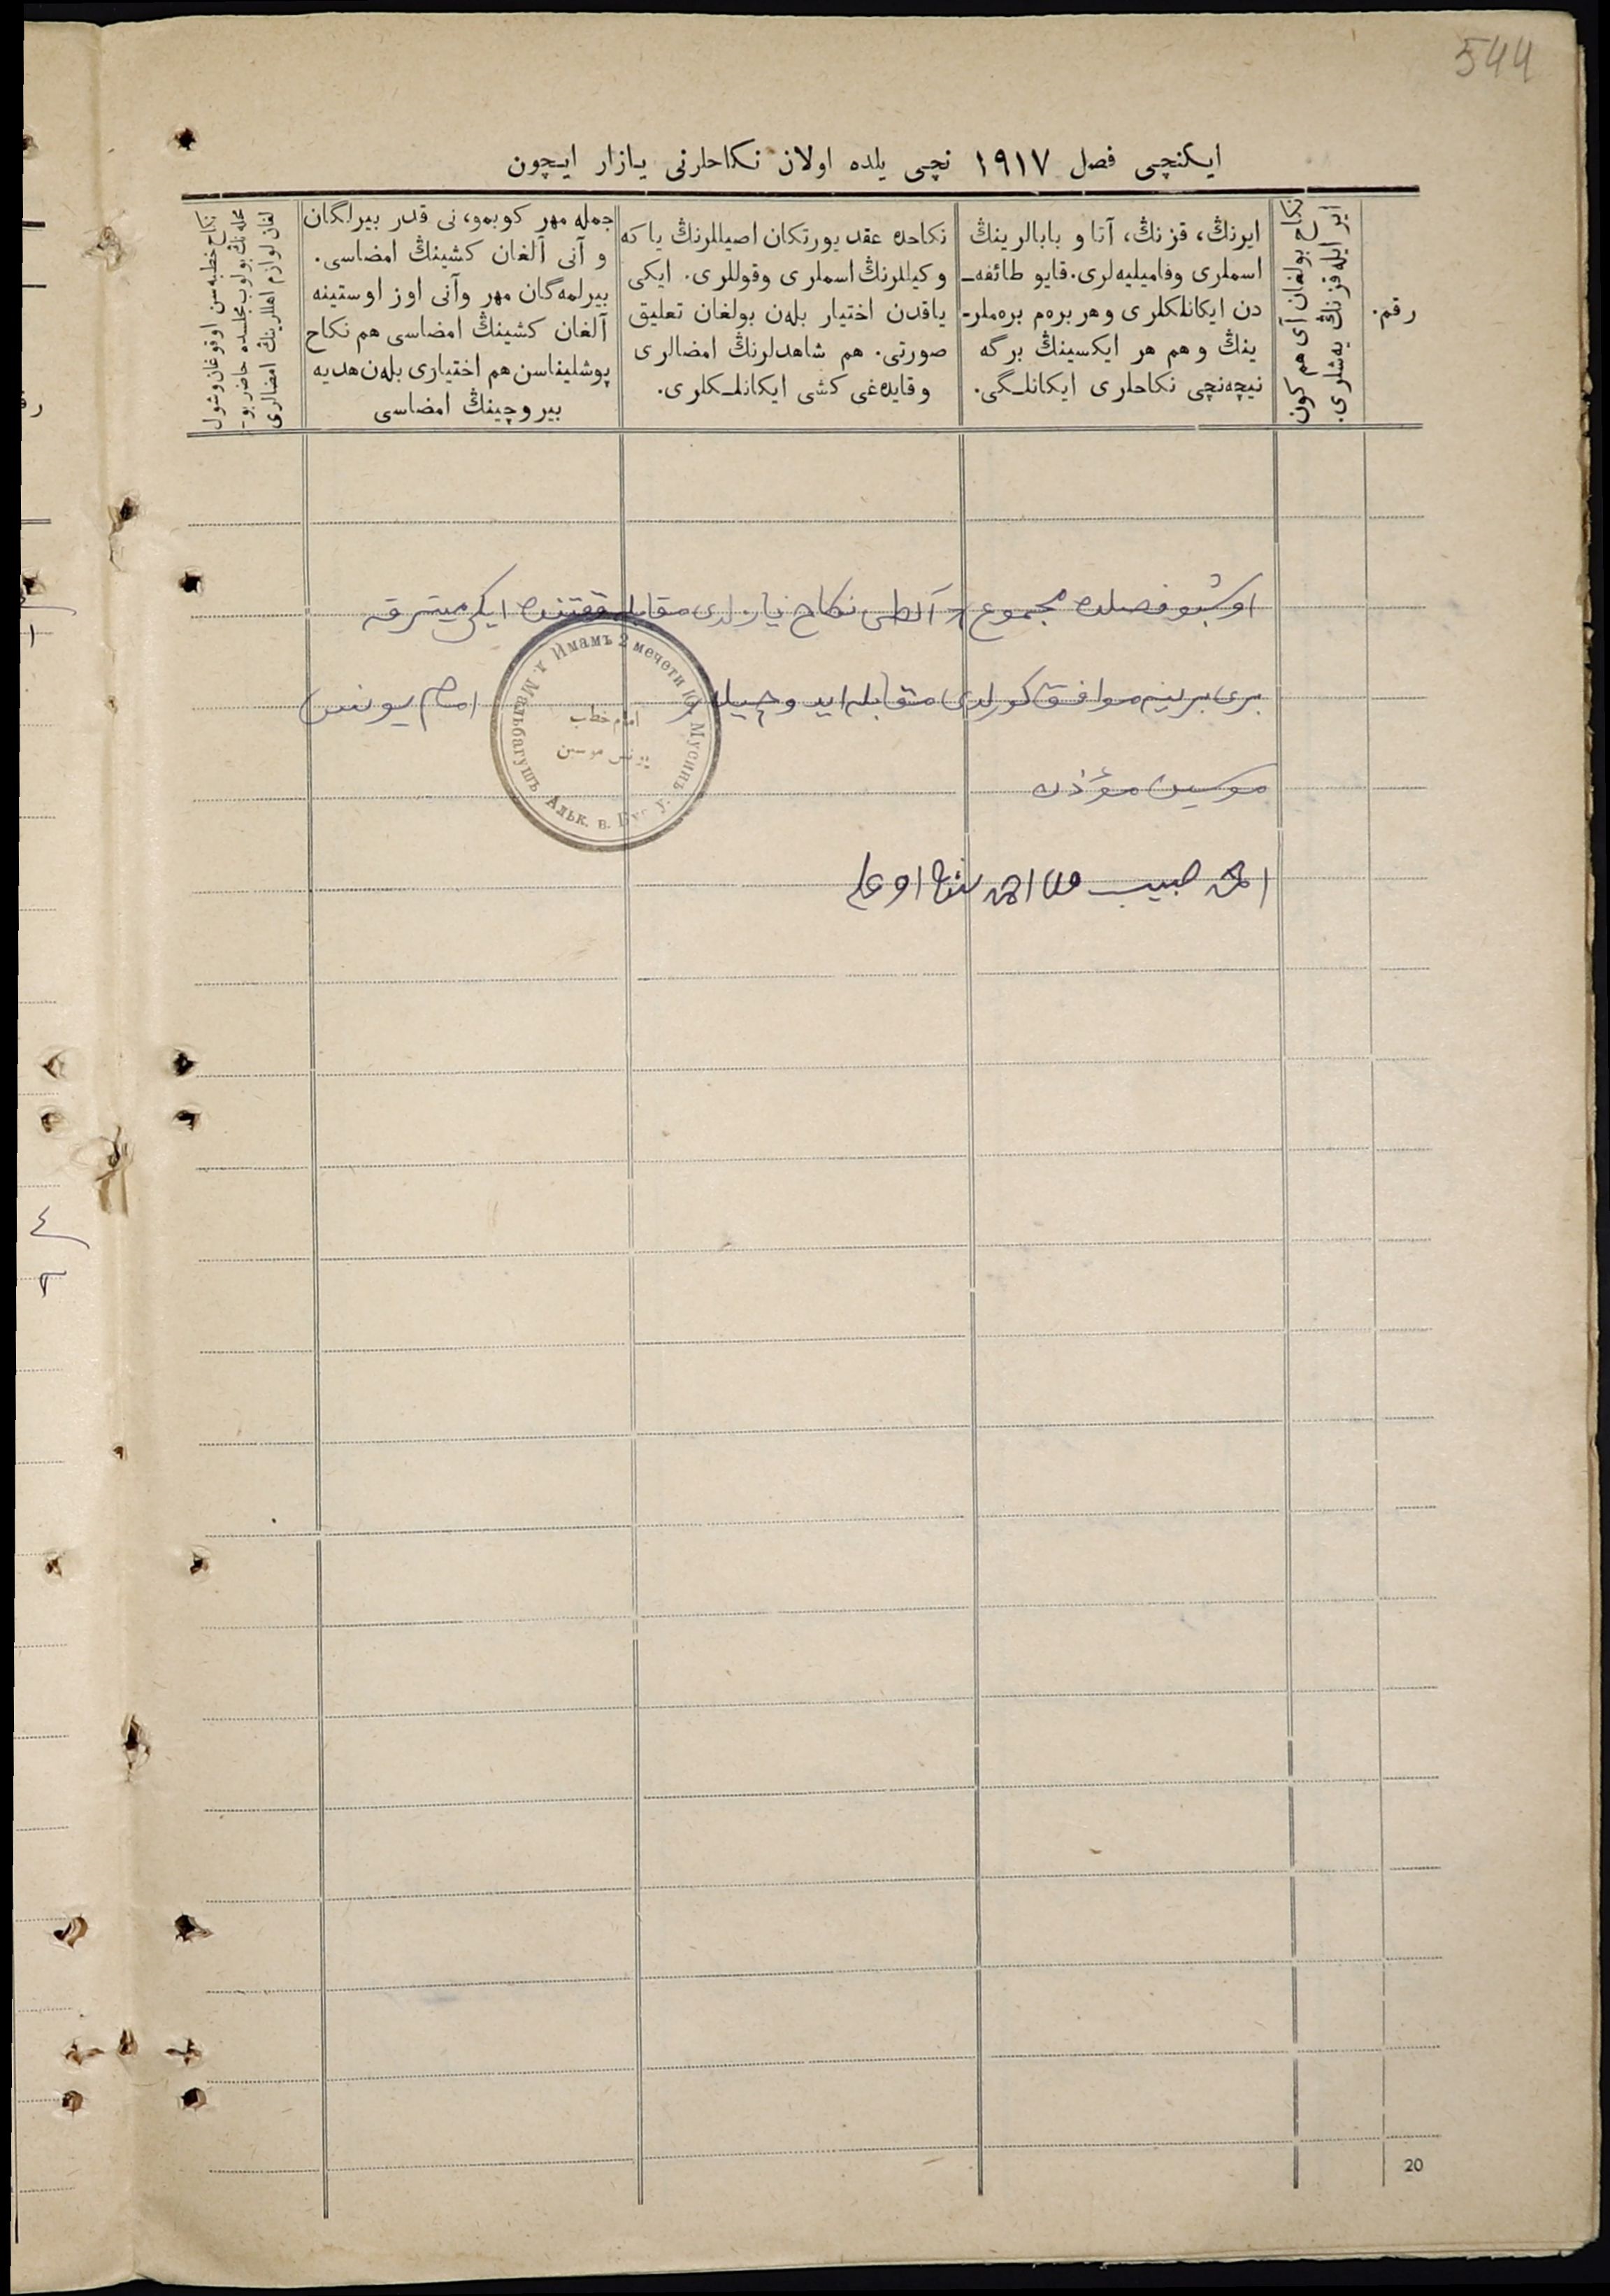 544
ایکنچی فصل ١٩١٧ نچی یلده اولان نکاحلرنی یازار ایچون
رقم.
نکاح بولغان آی هم کون
ایر ایله قزنڭ یه‌شلری.
ایرنڭ، قزنڭ، آتا و بابالرینڭ
اسملری وفامیلیه‌لری. قایو طائفه‌ـ
دن ایکانلکلری وهر بره‌م بره‌ملرـ
ینڭ و هم هر ایکسینڭ برگه
نیچه‌نچی نکاحلری ایکانلـگی.
نکاحده عقد یورتکان اصیللرنڭ یا که
وکیللرنڭ اسملری وقوللری. ایکی
یاقدن اختیار بله‌ن بولغان تعلیق
صورتی. هم شاهدلرنڭ امضالری
وقایده‌غی کشی ایکانلـکلری.
جمله مهر کوبمو، نی قدر بیرلگان
و آنی آلغان کشینڭ امضاسی.
بیرلمه‌گان مهر وآنی اوز اوستینه
آلغان کشینڭ امضاسی هم نکاح
پوشلیناسن هم اختیاری بله‌ن هدیه
بیروچینڭ امضاسی
نکاح خطبه‌سن اوقوغان وشول
محله‌نڭ بولوب مجلسده حاضر بوـ
لغان لوازم اهللرینڭ امضالری
اوشبو فصلده مجموع ٦ آلطی نکاح یازلدی مقابله وقتنده ایکی میترقه
بری برینه موافق کورلدی مقابله ایدوچیلر امام یونس
موسین مؤذن
احمد حبیب ملا احمد شاه اوغلی
Имамъ 2 мечети Ю. Мусинъ
امام خطب
یونس موسین
٤
٢
20